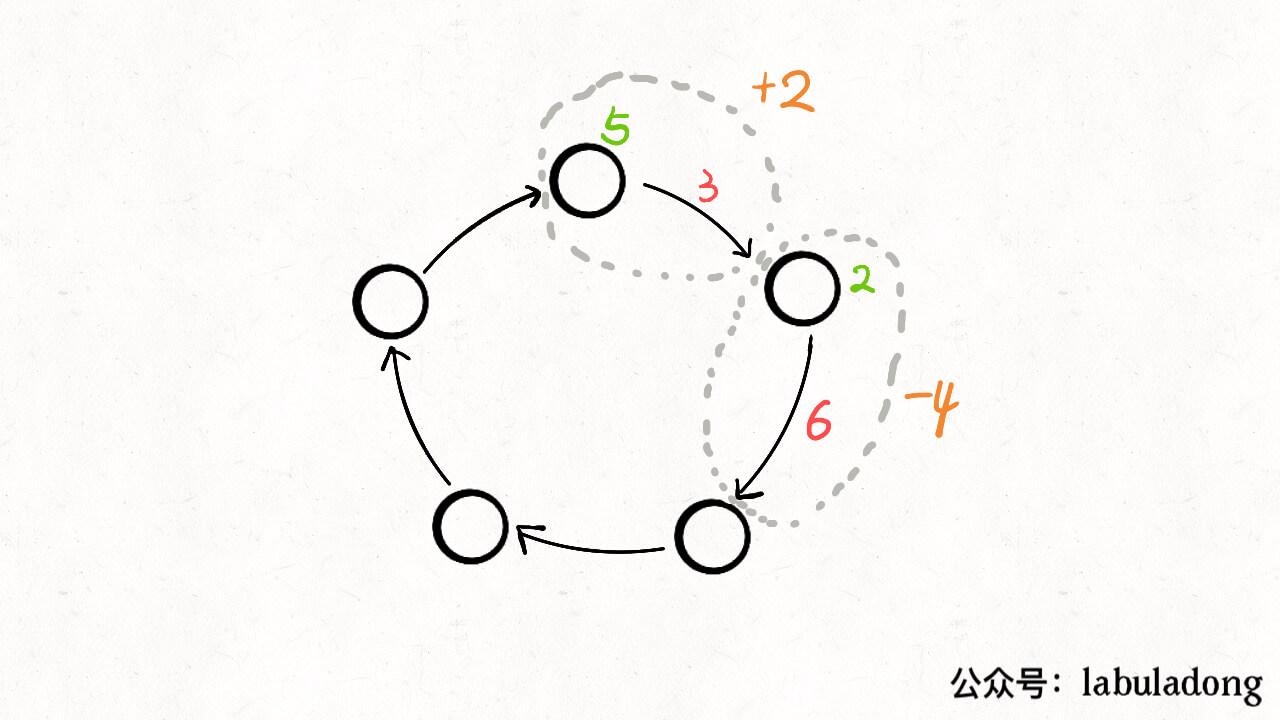 +2
5
3
2
-4
6
公众号：labuladong